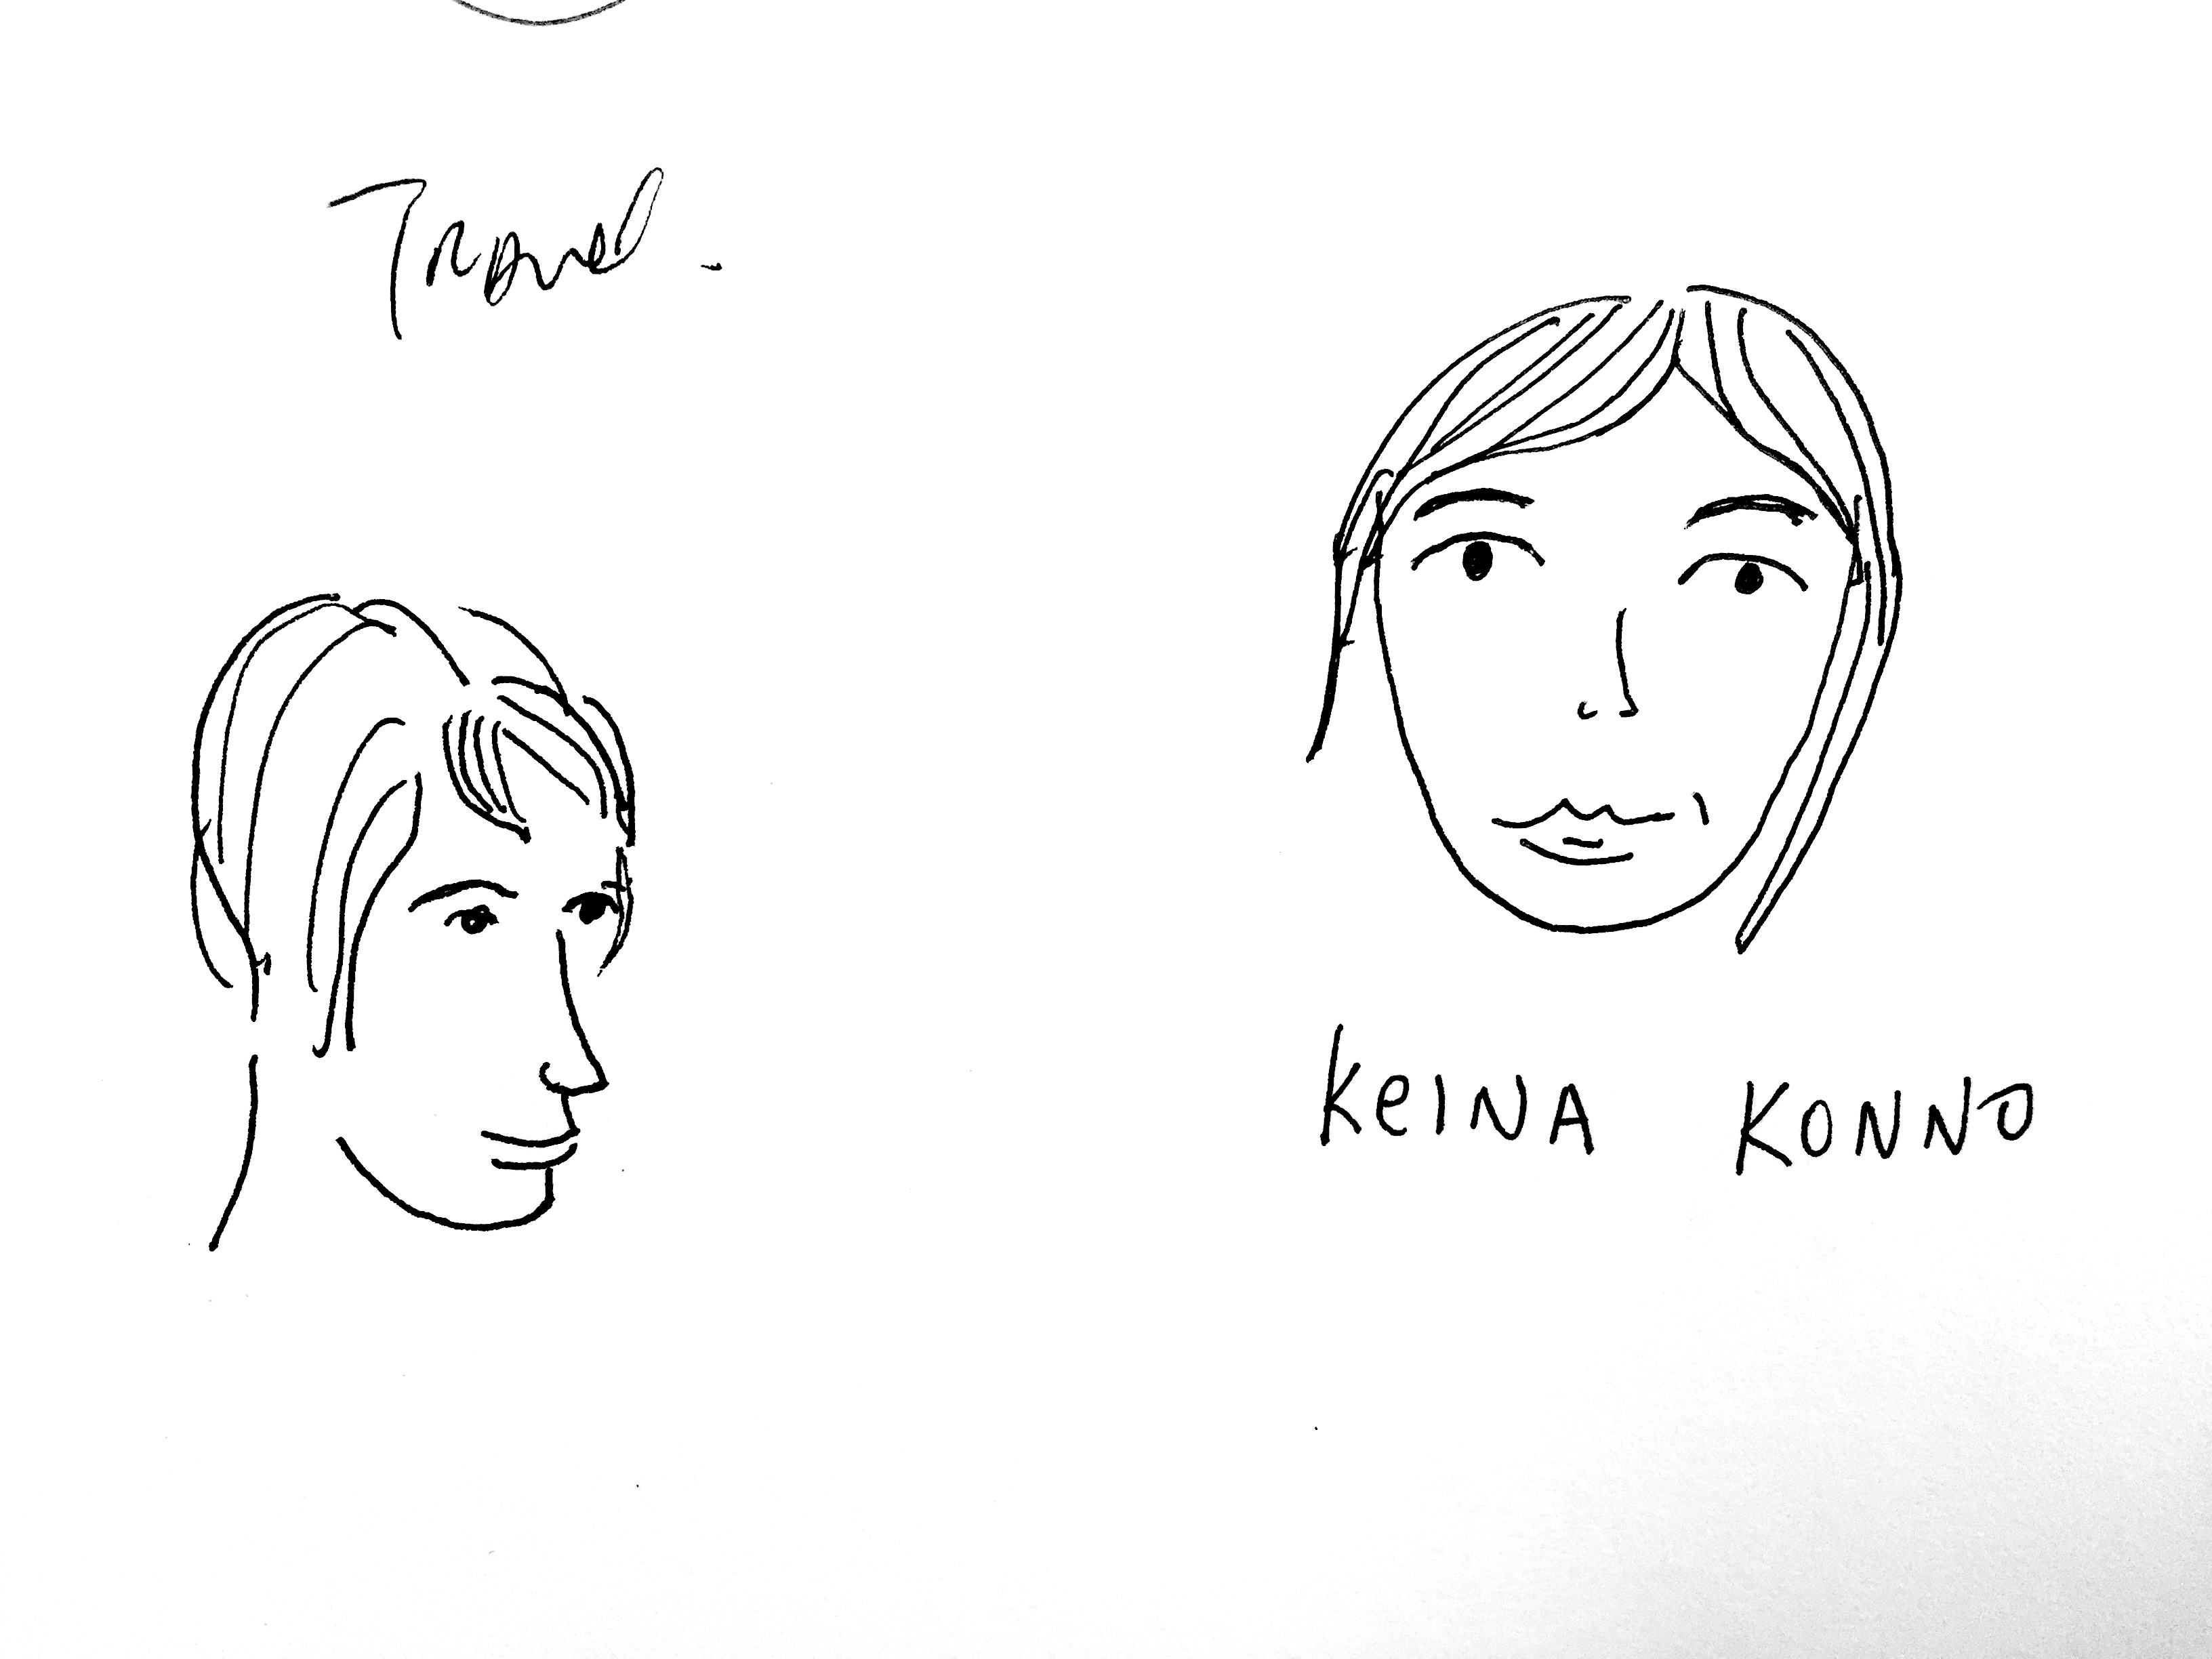 Travel
KeiNA KONNO